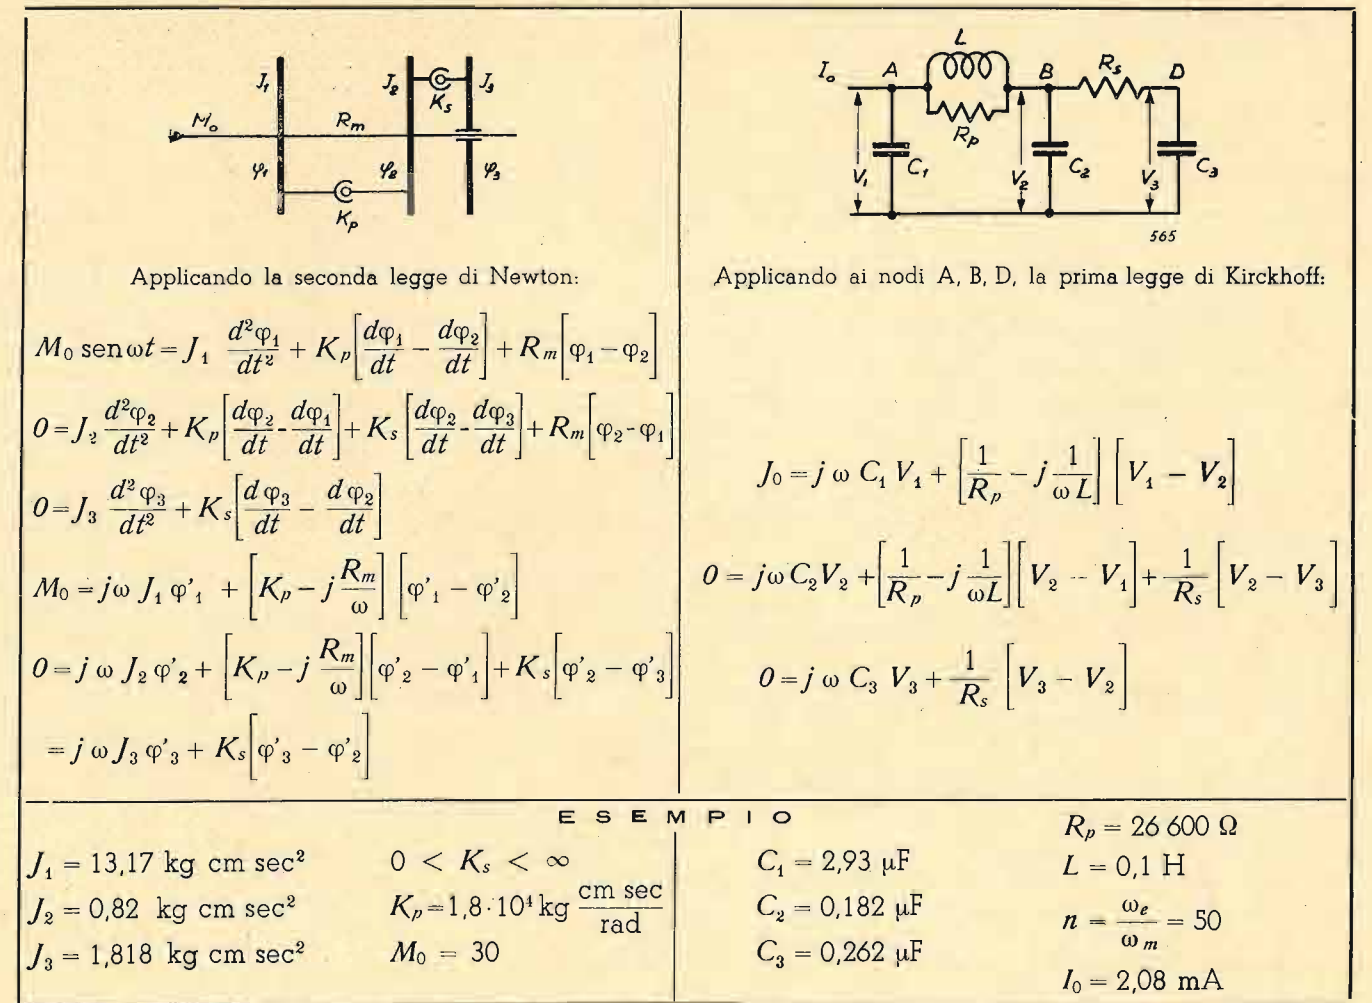 J₁ J₂ J₃
Kₛ
M₀ Rₘ
φ₁ φ₂ φ₃
Kₚ
L
I₀ A B Rₛ D
Rₚ
V₁ C₁ V₂ C₂ V₃ C₃
565
Applicando la seconda legge di Newton:
M₀ sen ωt = J₁ d²φ₁/dt² + Kₚ[dφ₁/dt − dφ₂/dt] + Rₘ[φ₁ − φ₂]
0 = J₂ d²φ₂/dt² + Kₚ[dφ₂/dt - dφ₁/dt] + Kₛ[dφ₂/dt - dφ₃/dt] + Rₘ[φ₂ - φ₁]
0 = J₃ d²φ₃/dt² + Kₛ[dφ₃/dt − dφ₂/dt]
M₀ = jω J₁ φ'₁ + [Kₚ − j Rₘ/ω] [φ'₁ − φ'₂]
0 = j ω J₂ φ'₂ + [Kₚ − j Rₘ/ω] [φ'₂ − φ'₁] + Kₛ[φ'₂ − φ'₃]
= j ω J₃ φ'₃ + Kₛ[φ'₃ − φ'₂]
Applicando ai nodi A, B, D, la prima legge di Kirckhoff:
J₀ = j ω C₁ V₁ + [1/Rₚ − j 1/ω L] [V₁ − V₂]
0 = jω C₂ V₂ + [1/Rₚ − j 1/ωL] [V₂ − V₁] + 1/Rₛ [V₂ − V₃]
0 = j ω C₃ V₃ + 1/Rₛ [V₃ − V₂]
ESEMPIO
J₁ = 13,17 kg cm sec²
J₂ = 0,82 kg cm sec²
J₃ = 1,818 kg cm sec²
0 < Kₛ < ∞
Kₚ = 1,8 · 10⁴ kg cm sec/rad
M₀ = 30
C₁ = 2,93 µF
C₂ = 0,182 µF
C₃ = 0,262 µF
Rₚ = 26 600 Ω
L = 0,1 H
n = ωₑ/ωₘ = 50
I₀ = 2,08 mA